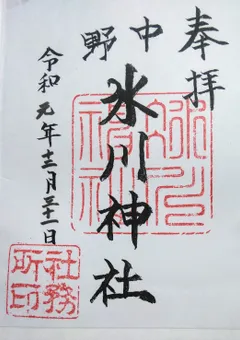 奉拝
中野
氷川神社
令和元年十二月三十一日
氷川
神社
社務
所印